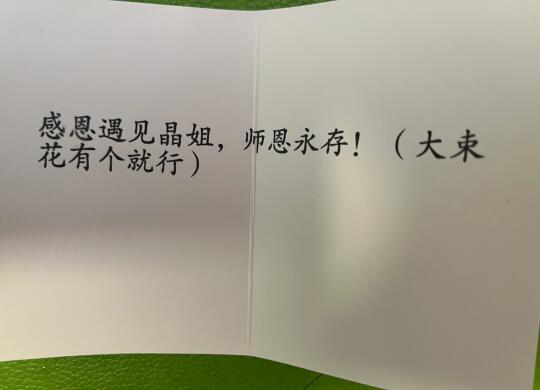 感恩遇见晶姐，师恩永存！（大束
花有个就行）